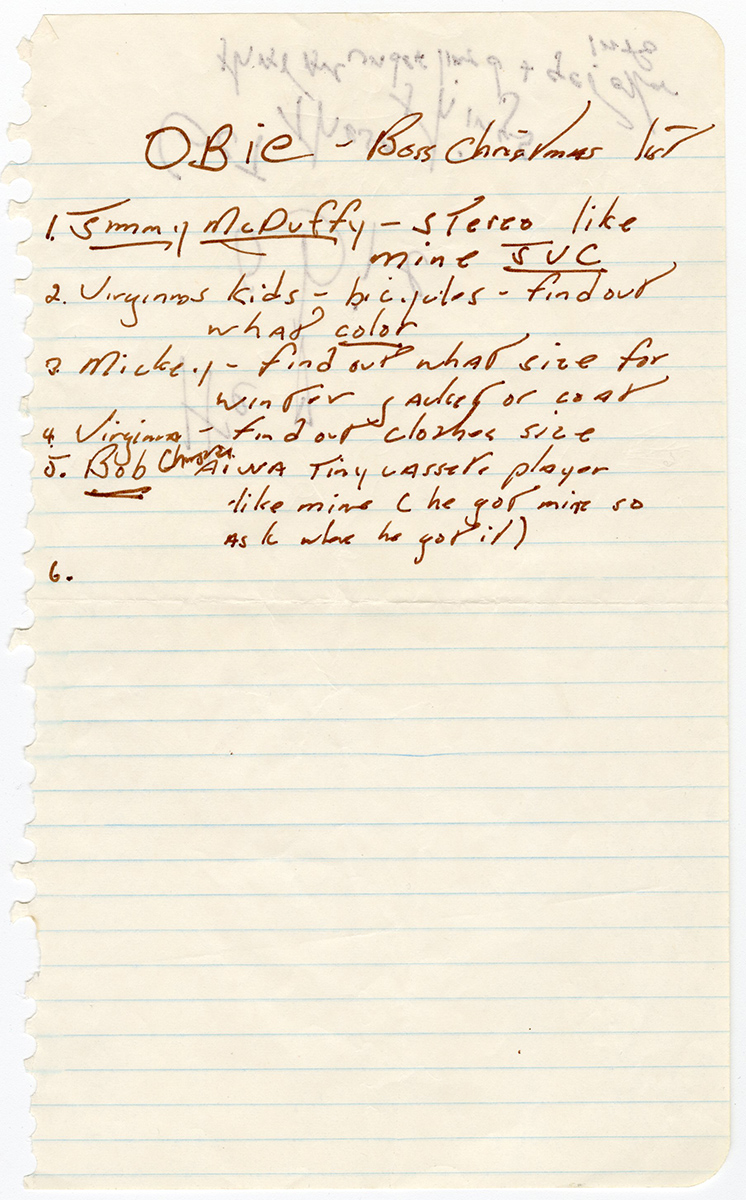 OBie - Boss Christmas list
1. Jimmy McDuffy - stereo like
mine JVC
2. Virginias kids - bicycles - find out
what color
3. Mickey - find out what size for
winter jacket or coat
4. Virginia - find out clothes size
5. Bob AIWA Tiny cassete player
like mine ( he got mine so
ask where he got it)
6.